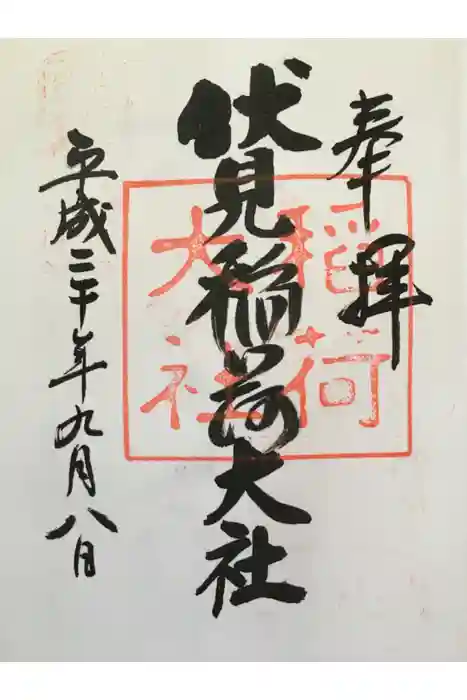 奉拝
伏見稲荷大社
稲荷
大社
平成二十年九月八日